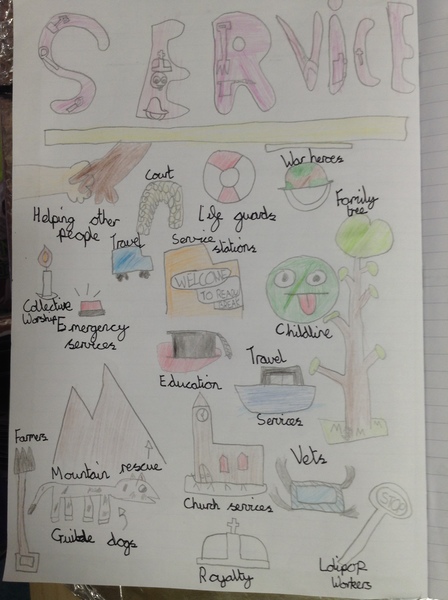 SERVICE
Helping other
people
Court
Life guards
War heroes
Family
tree
Travel
Service
stations
WELCOME
TO
Collective
Worship
Emergency
services
Childline
Education
Travel
Services
MOMM
Farmers
Mountain rescue
Church services
Vets
Guide dogs
STOP
Royalty
Lolipop
Workers